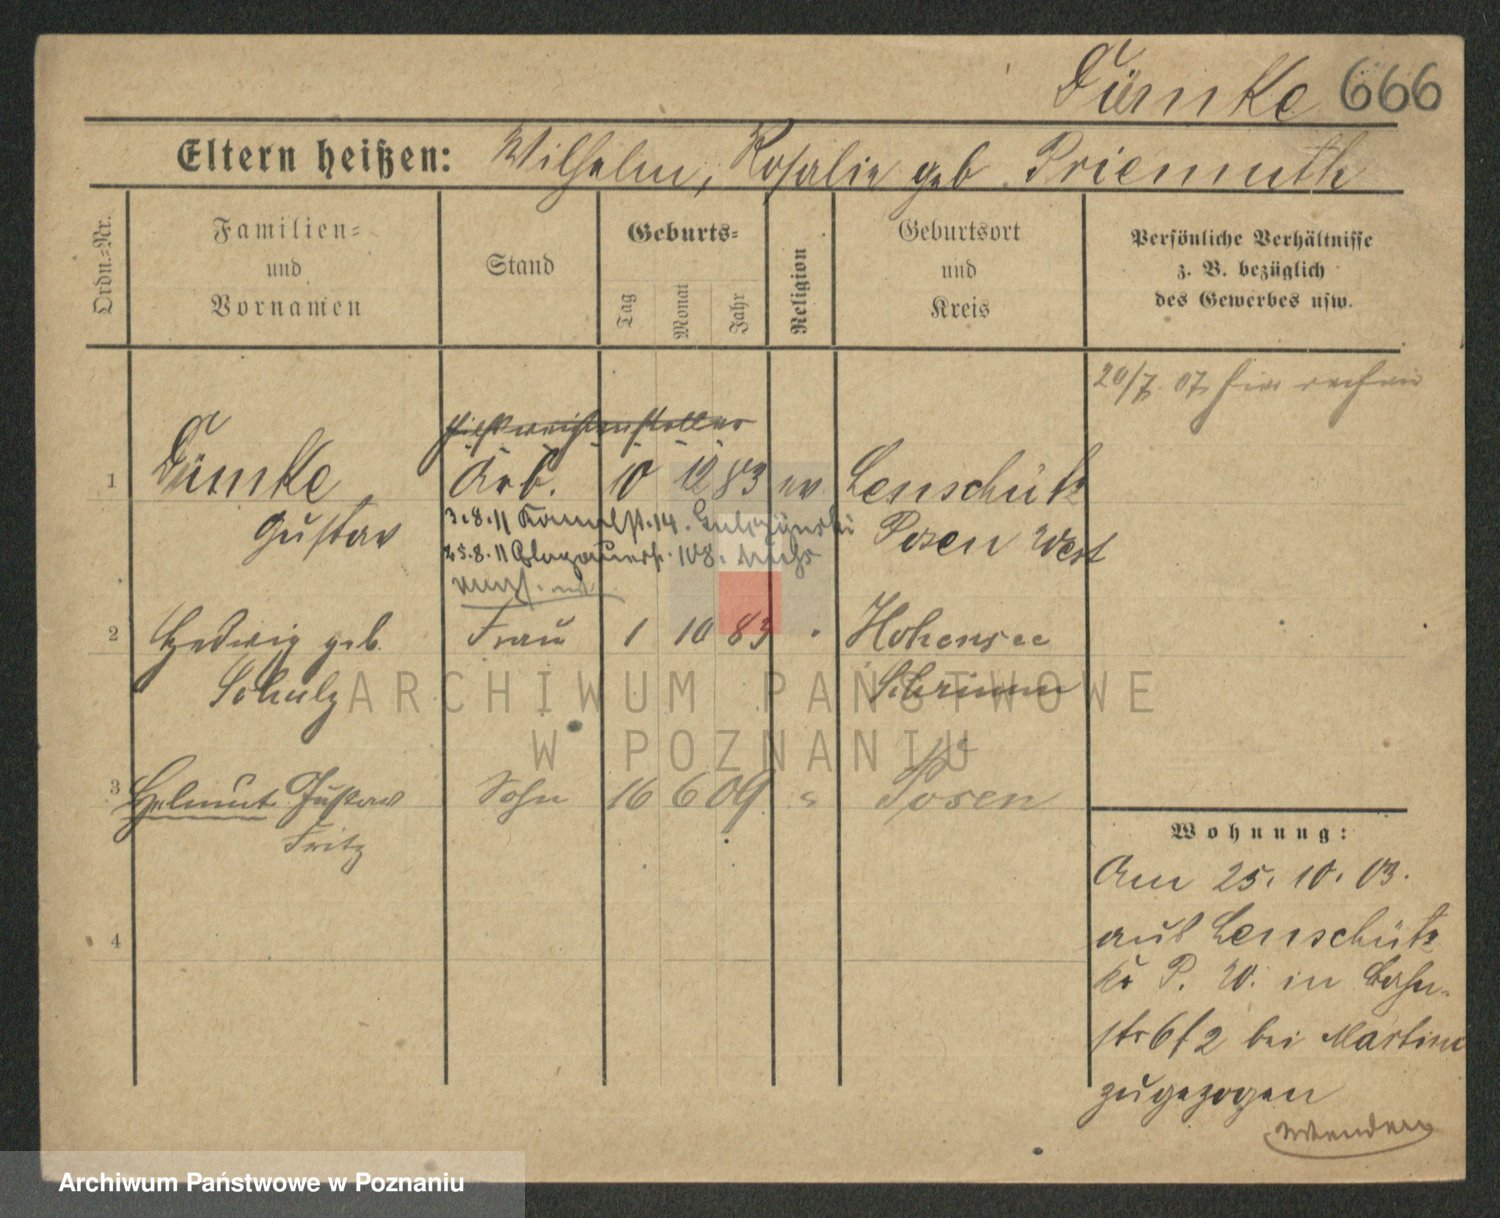 Dümke 666
Eltern heißen: Wilhelm, Rosalie geb. Priemuth
Ordn.-Nr.
Familien-
und
Vornamen
Stand
Geburts-
Tag
Monat
Jahr
Religion
Geburtsort
und
Kreis
Persönliche Verhältnisse
z. B. bezüglich
des Gewerbes usw.
20/7. 07.
Hilfsweichensteller
1 Dümke Arb. 10 12 83 ev Lenschütz
Gustav Posen West
3.8.11 14.
25.8.11 Glogauerstr. 108.
2 Hedwig geb. Frau 1 10 83 " Hohensee
Schulz Schrimm
3 Helmut Gustav Sohn 16 6 09 " Posen
Fritz
4
Wohnung:
Am 25. 10. 03.
aus Lenschütz
Kr P. W. in Bahn-
str 6/2 bei Martin
zugezogen
Wenden
ARCHIWUM PAŃSTWOWE
W POZNANIU
Archiwum Państwowe w Poznaniu